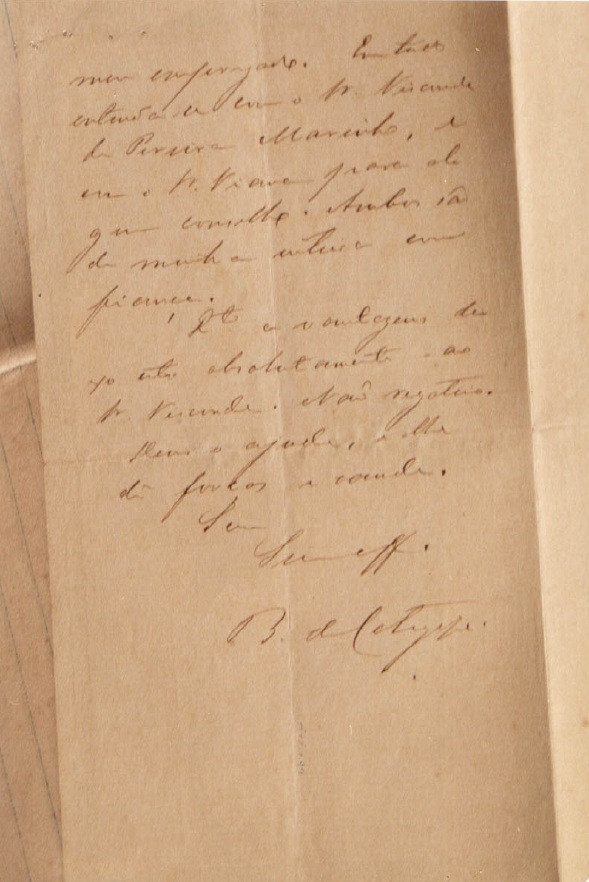 meu empregado. Em tudo
entenda-se com o Sr. Visconde
de Pereira Marinho, e
com o Sr. Viana para al
gum conselho. Ambos são
de minha inteira con
fiança.
as vantagens dei
xo isto absolutamente ao
Sr. Visconde. Não regateio.
Deus o ajude, e lhe
dê forças e saude.
Sou
Seu aff.
B. de Cotegipe.